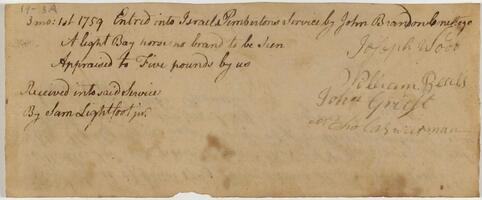 3 mo: 1st 1759 Entred into Israel Pemberton's Service by John Brandon
A light Bay horse no brand to be seen
Joseph Wood
Appraised to Five pounds by us
William Beals
Received into said Service
John Griest
By Sam Lightfoot jr.